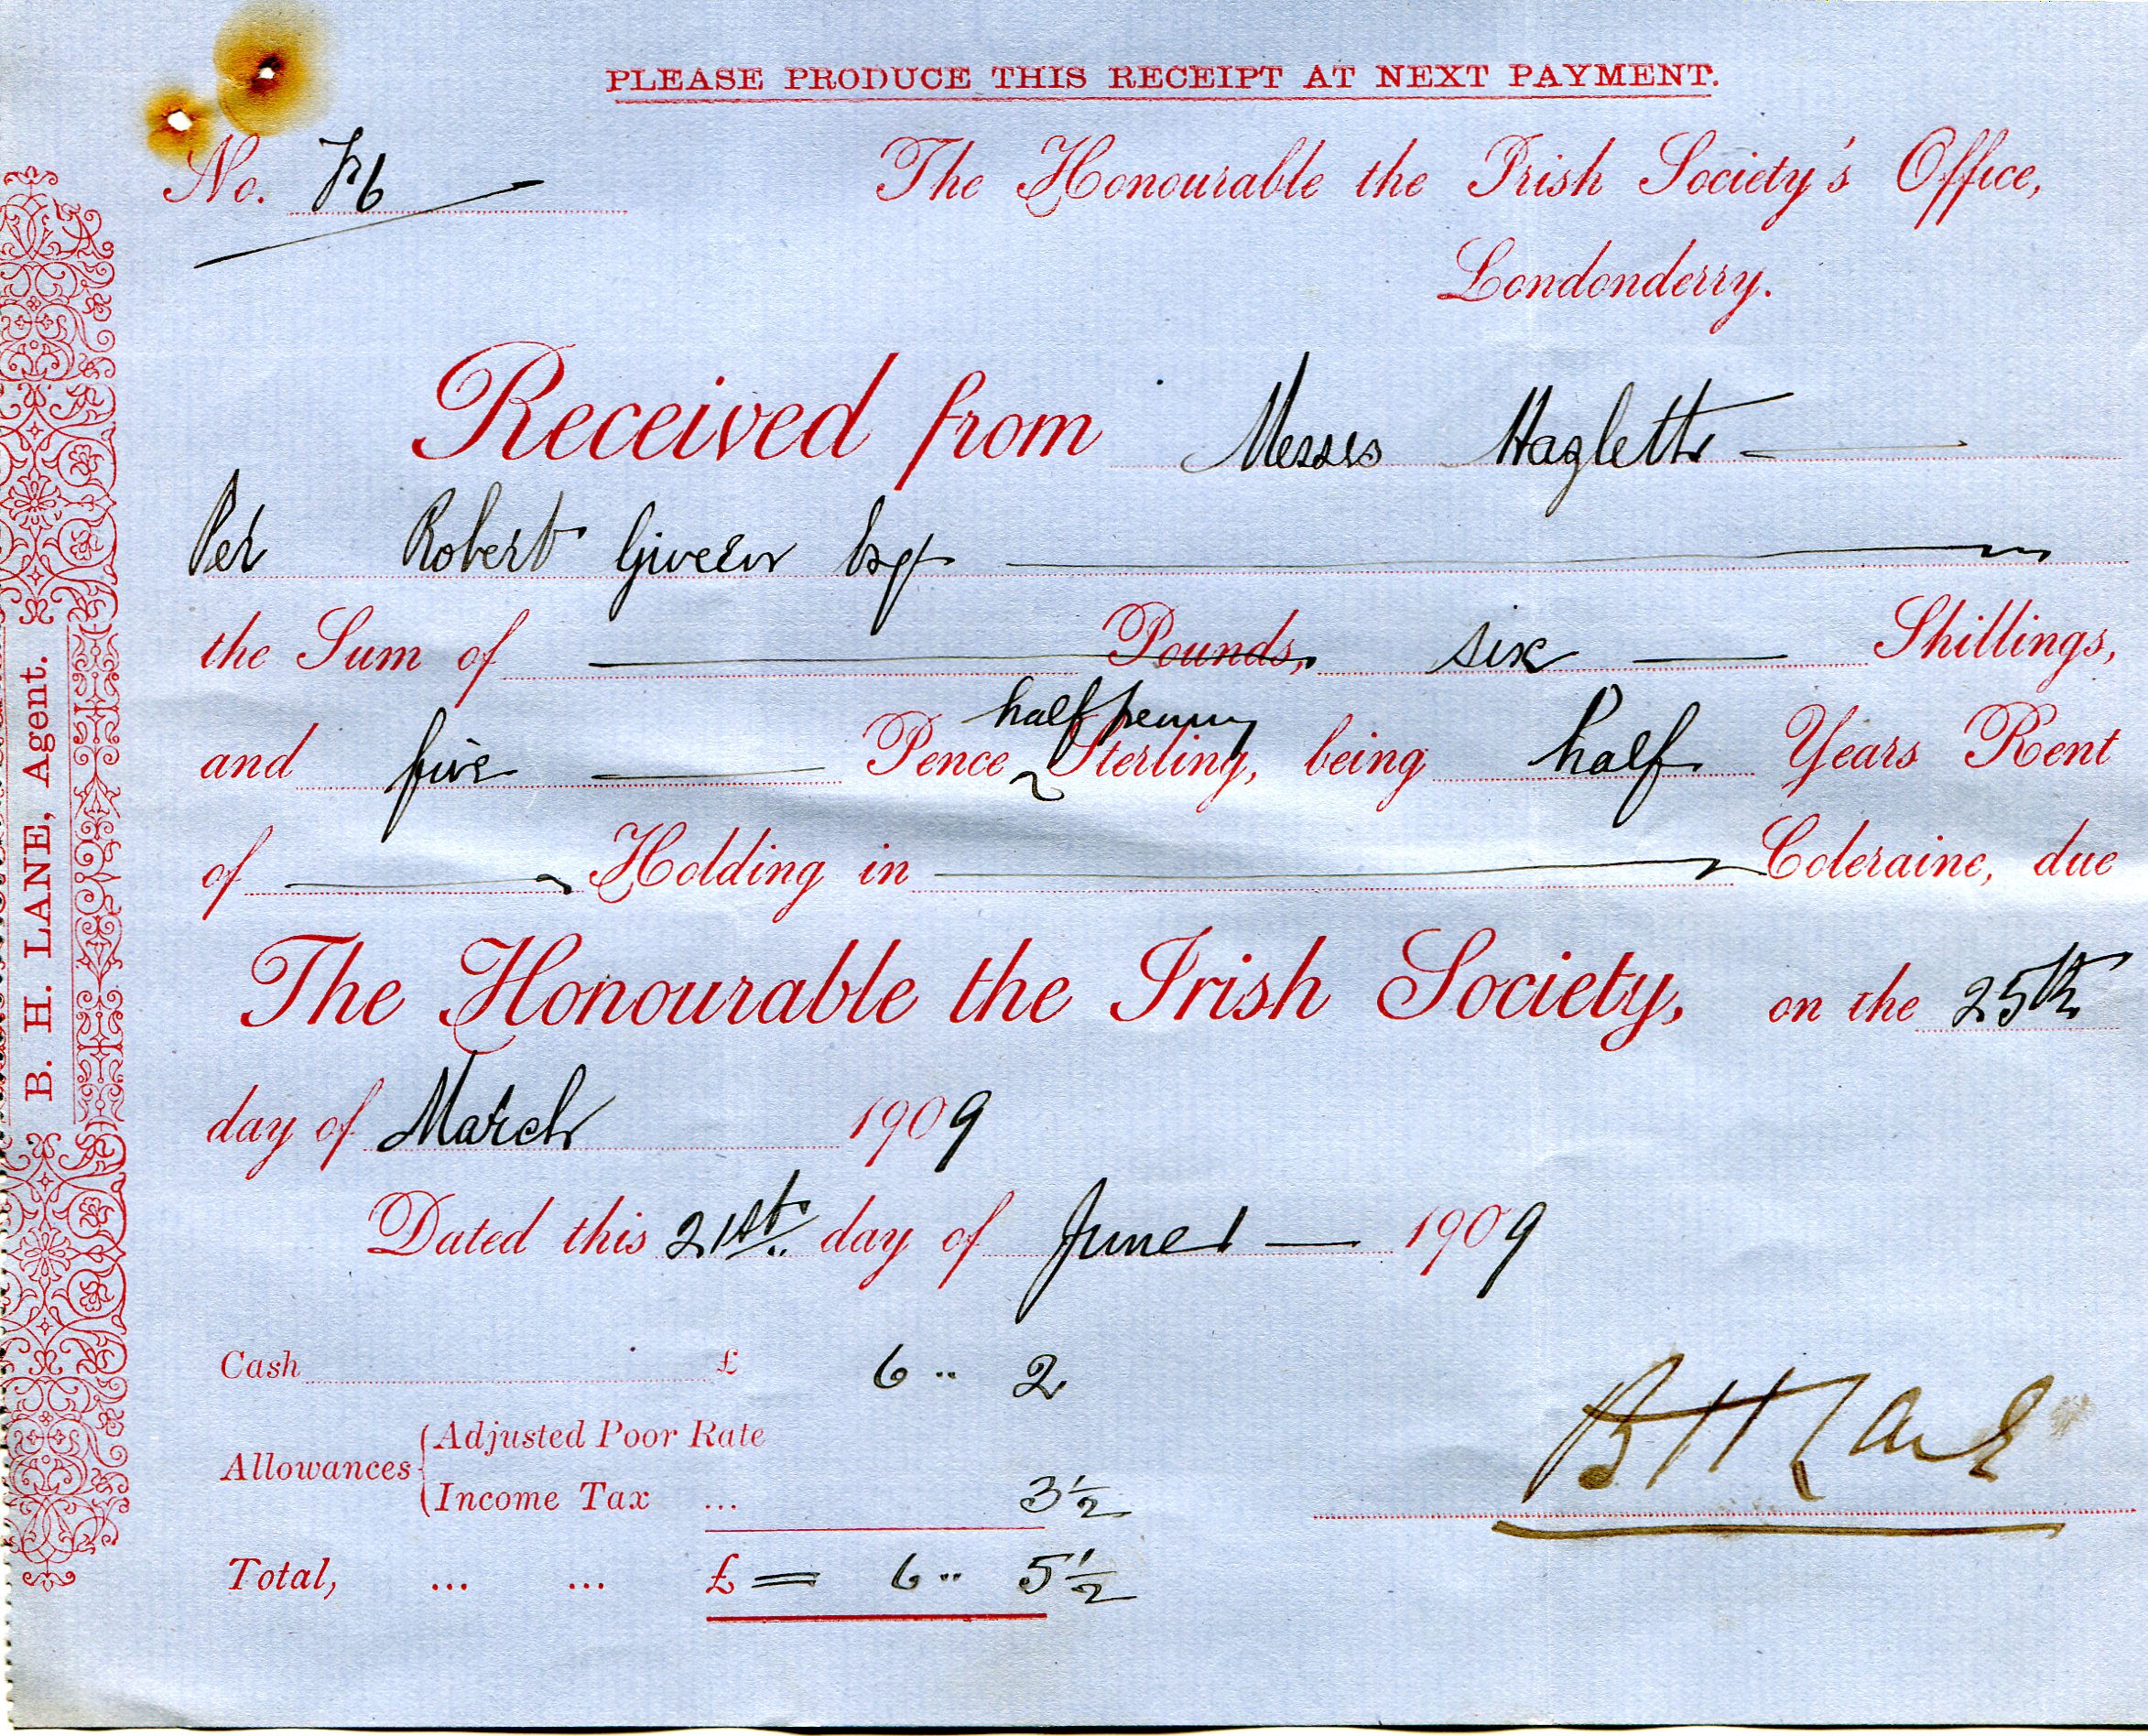 PLEASE PRODUCE THIS RECEIPT AT NEXT PAYMENT.
No.
The Honourable the Irish Society's Office,
Londonderry.
Received from Messrs Hazletts
Per Robert Given Esqr
the Sum of Pounds, six Shillings,
and five Pence halfpenny Sterling, being half Years Rent
of Holding in Coleraine, due
The Honourable the Irish Society, on the 25th
day of March 1909
Dated this 21st. day of June 1909
Cash £ 6 .. 2
Allowances { Adjusted Poor Rate
Income Tax ... 3½
Total, ... ... £ = 6 .. 5½
B H Lane
B. H. LANE, Agent.